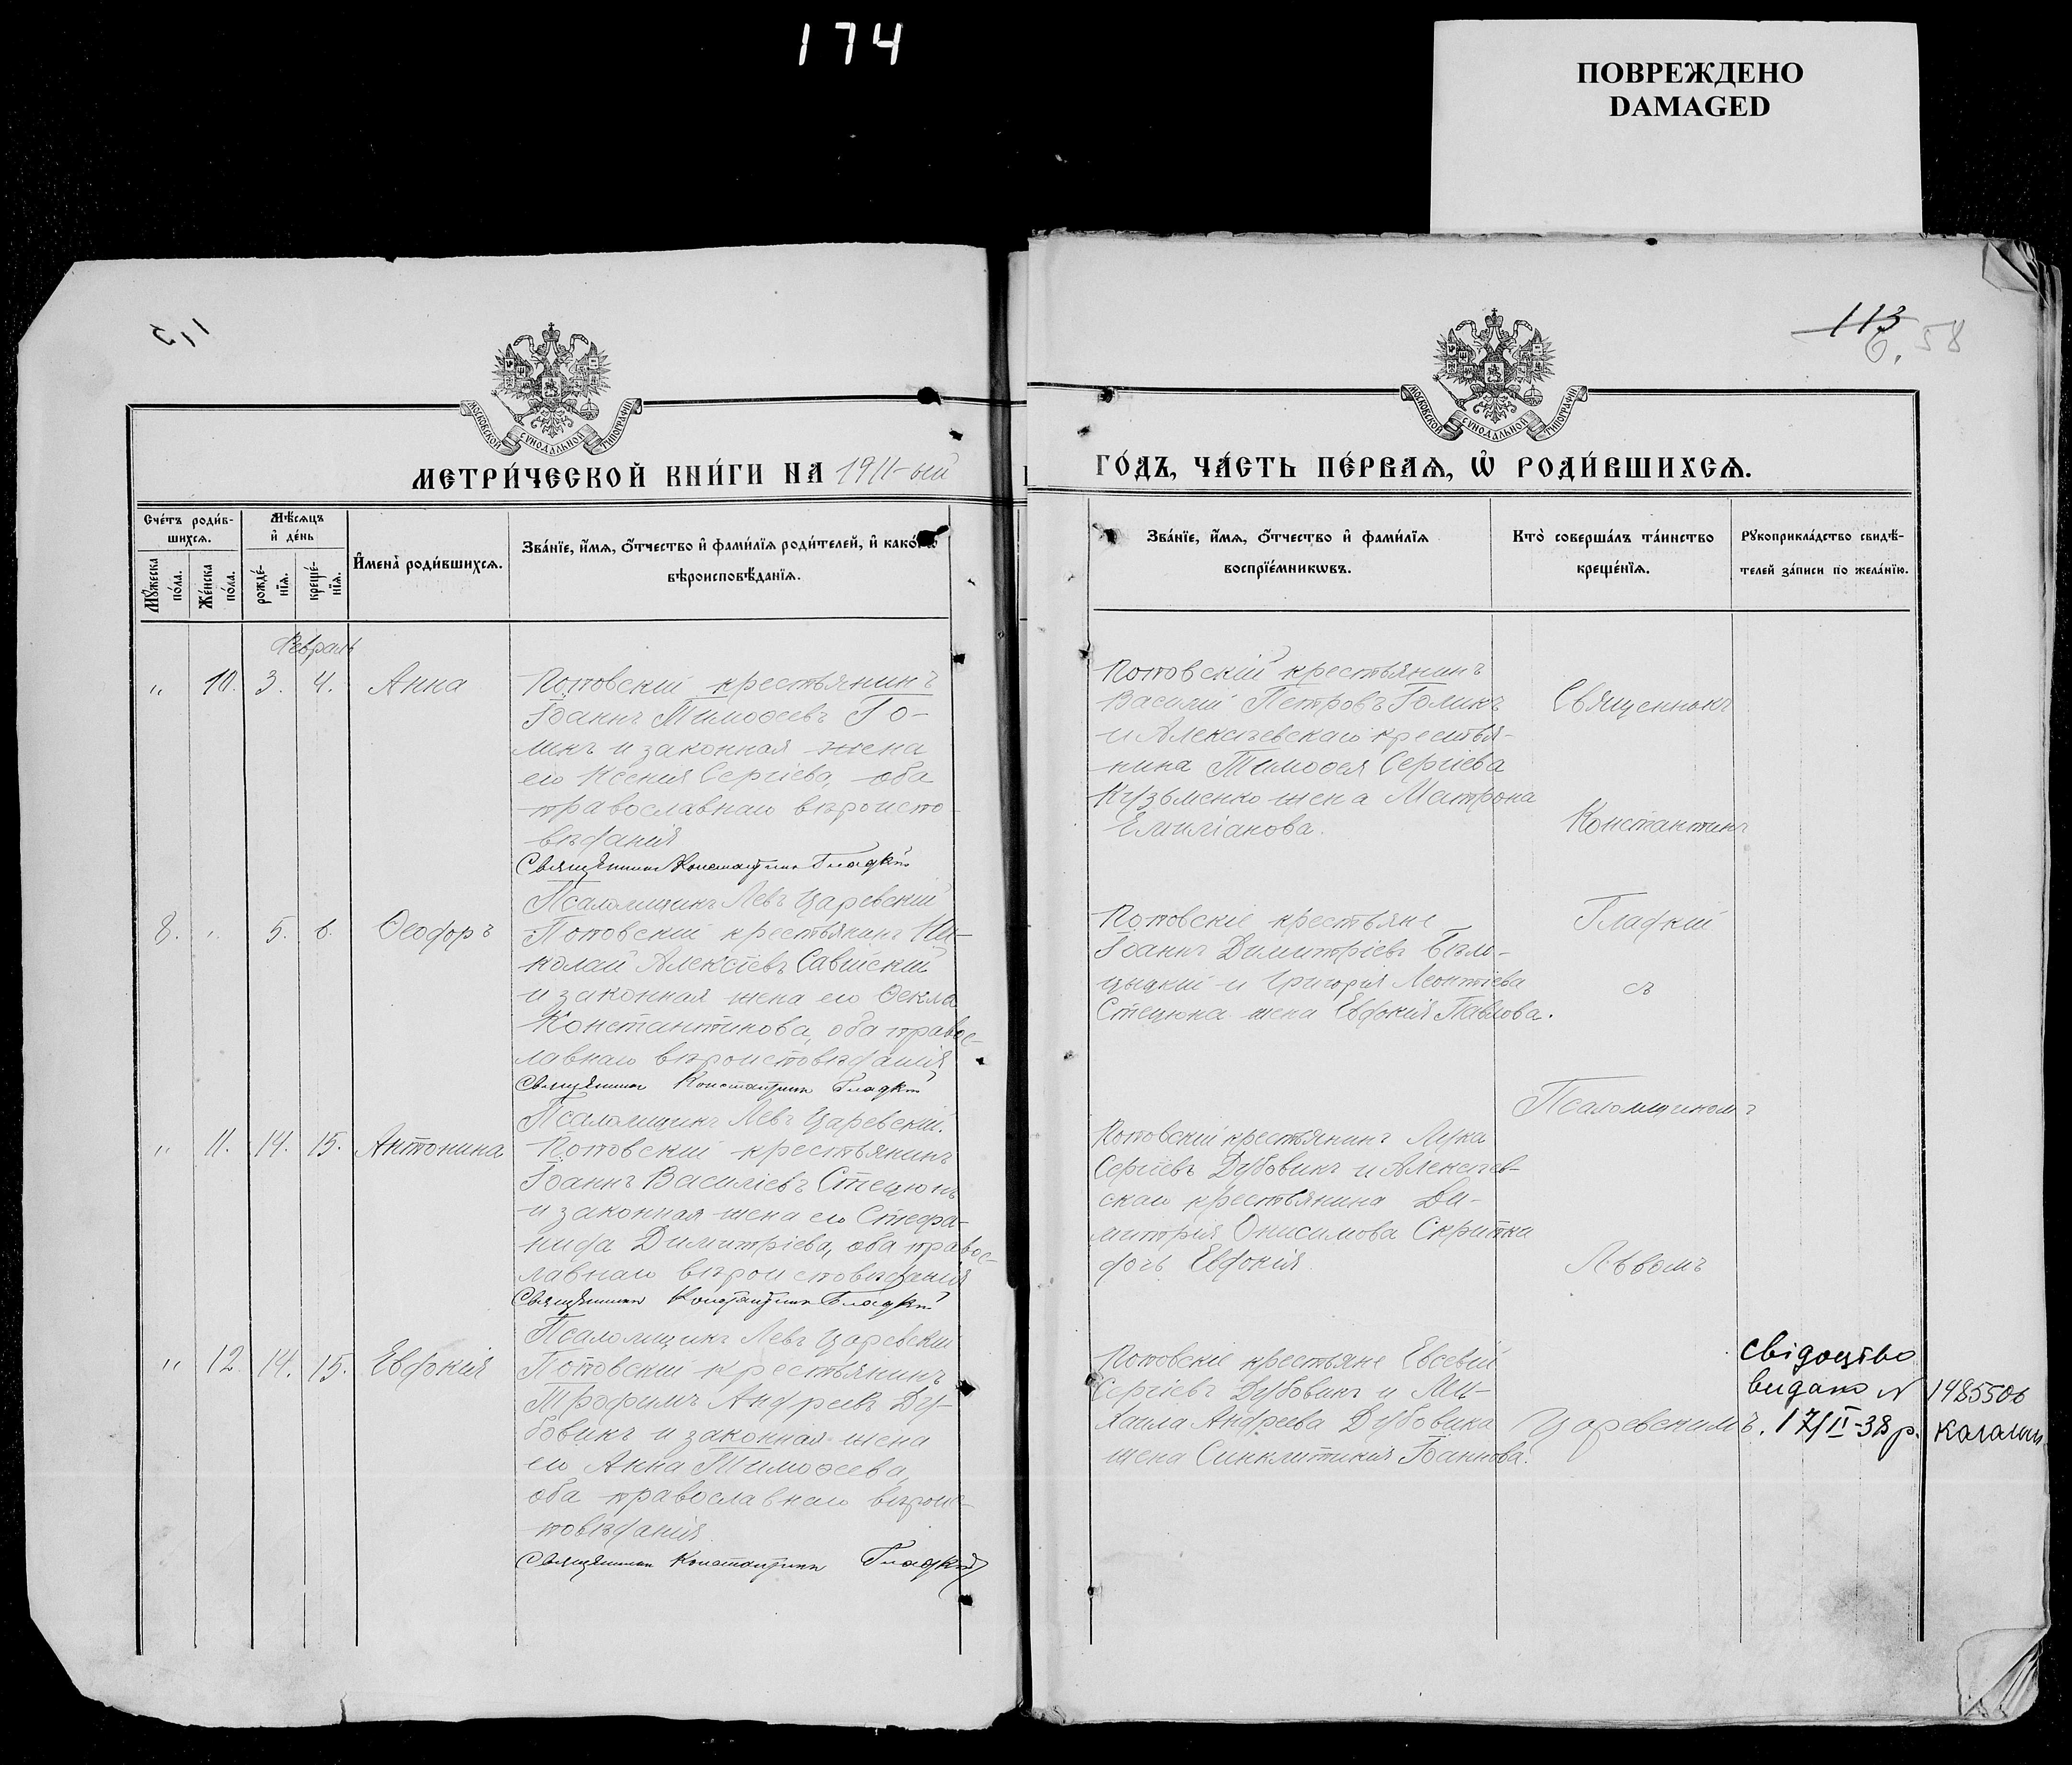 174
ПОВРЕЖДЕНО
DAMAGED
113
6. 58
МОСКОВСКОЙ СѴНОДАЛЬНОЙ ТИПОГРАФІИ
МОСКОВСКОЙ СѴНОДАЛЬНОЙ ТИПОГРАФІИ
МЕТРИ́ЧЕСКОЙ КНИ́ГИ НА 1911-ый
ГО́ДЪ, ЧА́СТЬ ПЕ́РВАѦ, Ѡ҆ РОДИ́ВШИХСѦ.
Сче́тъ роди́в-
шихсѧ.
Мꙋ́жеска по́ла.
Же́нска по́ла.
Мѣ́сѧцъ
и҆ де́нь
рожде́-
нїѧ.
креще́-
нїѧ.
И҆мена̀ роди́вшихсѧ.
Зва́нїе, и҆́мѧ, ѻ҆́тчество и҆ фами́лїѧ роди́телей, и҆ како́гѡ
вѣроисповѣ́данїѧ.
Зва́нїе, и҆́мѧ, ѻ҆́тчество и҆ фами́лїѧ
воспрїе́мникѡвъ.
Кто̀ соверша́лъ та́инство
креще́нїѧ.
Рꙋкоприкла́дство свидѣ́-
телей за́писи по жела́нїю.
Февраль
" 10. 3. 4. Анна
Поповскій крестьянинъ
Іоаннъ Тимоѳеевъ Го-
ликъ и законная жена
его Ксенія Сергіева, оба
православнаго вѣроиспо-
вѣданія
Священникъ Константинъ Гладкій
Псаломщикъ Левъ Царевскій
Поповскій крестьянинъ
Василій Петровъ Голикъ
и Алексѣевскаго крестья-
нина Тимоѳея Сергіева
Кузьменко жена Матрона
Емиліанова.
Священникъ
Константинъ
Гладкій
съ
Псаломщикомъ
Львомъ
Царевскимъ.
8. " 5. 6. Ѳеодоръ
Поповскій крестьянинъ Ни-
колай Алексіевъ Савійскій
и законная жена его Ѳекла
Константинова, оба правос-
лавнаго вѣроисповѣданія
Священникъ Константинъ Гладкій
Псаломщикъ Левъ Царевскій.
Поповскіе крестьяне
Іоаннъ Димитріевъ Бѣли-
цыцкій и Григорія Леонтіева
Стецюка жена Евдокія Павлова.
" 11. 14. 15. Антонина
Поповскій крестьянинъ
Іоаннъ Василіевъ Стецюкъ
и законная жена его Стефа-
нида Димитріева, оба правос-
лавнаго вѣроисповѣданія
Священникъ Константинъ Гладкій
Псаломщикъ Левъ Царевскій
Поповскій крестьянинъ Лука
Сергіевъ Дубовикъ и Алексѣев-
скаго крестьянина Ди-
митрія Онисимова Скрипки
дочь Евдокія.
" 12. 14. 15. Евдокія
Поповскій крестьянинъ
Трофимъ Андреевъ Ду-
бовикъ и законная жена
его Анна Тимоѳеева,
оба православнаго вѣроис-
повѣданія
Священникъ Константинъ Гладкій
Поповскіе крестьяне Евсевій
Сергіевъ Дубовикъ и Ми-
хаила Андреева Дубовика
жена Синклитикія Іоаннова.
свідоцтво
видано N 1485506
17/II-38 р.